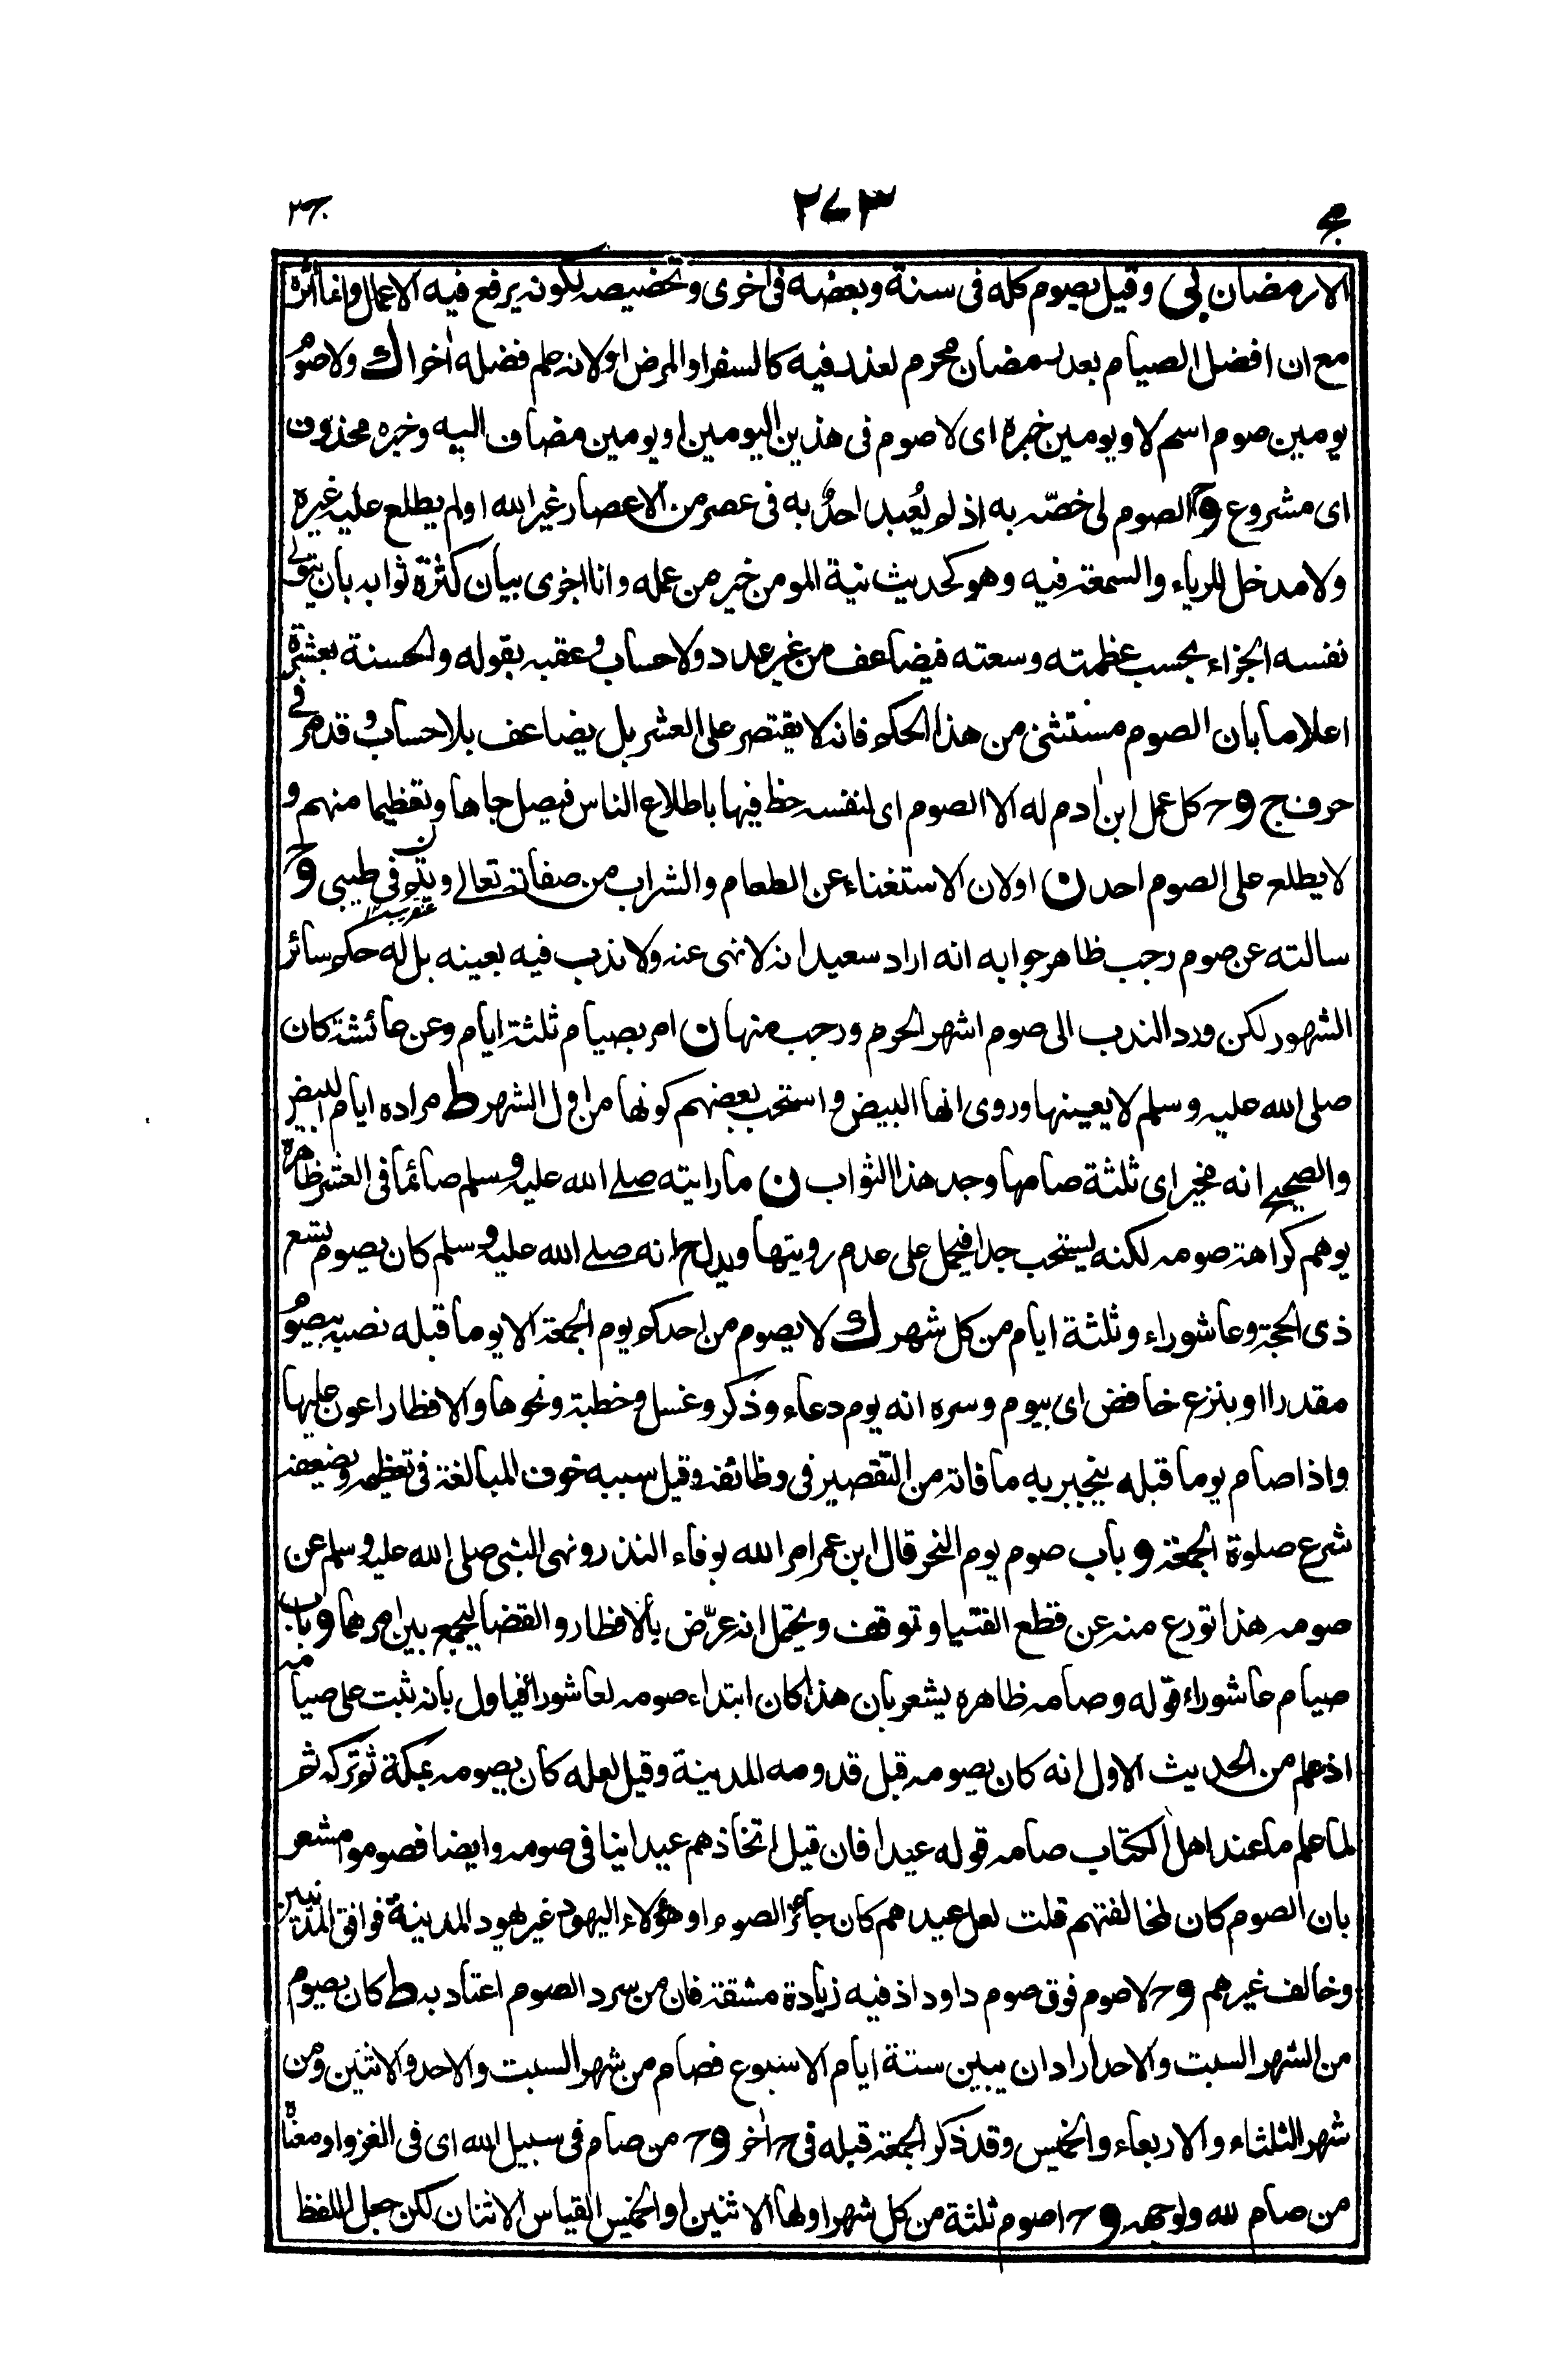 ٢٧٣
الا رمضان لی وقيل يصوم كله فی سنة وبعضه فی اخری وتخصيصه لكونه يرفع فيه الاعمال وانما اثره
مع ان افضل الصيام بعد رمضان محرم لعذر فيه كالسفر او المرض او لانه علم فضله اٰخرا ك ولا صوم
يومين صوم اسم لا ويومين خبره ای لا صوم فی هذين اليومين او يومين مضاف اليه وخبره محذوف
ای مشروع و ح الصوم لی خصّه به اذ لم يُعبد احدٌ به فی عصر من الاعصار غير الله او لم يطلع عليه غيره
ولا مدخل للرياء والسمعة فيه وهو كحديث نية المومن خير من عمله وانا اجزی بيان كثرة ثوابه بان يتولی
نفسه الجزاء بحسب عظمته وسعته فيضاعف من غير عدد ولا حساب وعقبه بقوله والحسنة بعشرة
اعلاما بان الصوم مستثنی من هذا الحكم فانه لا يقتصر علی العشر بل يضاعف بلا حساب وقد مر فی
حرف ج و ح كل عمل ابن اٰدم له الا الصوم ای لنفسه حظ فيها باطلاع الناس فيصل جاها وتعظيما منهم و
لا يطلع علی الصوم احد ن او لان الاستغناء عن الطعام والشراب من صفاته تعالی ويتم فی طيبی و ح
سالته عن صوم رجب ظاهر جوابه انه اراد سعيد انه لا نهی عنه ولا ندب فيه بعينه بل له حكم سائر
الشهور لكن ورد الندب الی صوم اشهر الحرم ورجب منها ن امر بصيام ثلثة ايام وعن عائشة كان
صلی الله عليه وسلم لا يعينها وروی انها البيض واستحب بعضهم كونها من اول الشهر ط مراده ايام البيض
والصحيح انه مخير ای ثلثة صامها وجد هذا الثواب ن ما رايته صلے الله عليه وسلم صائما فی العشر ظاهره
يوهم كراهة صومه لكنه يستحب جدا فيحمل علی عدم رويتها ويدل ح انه صلے الله عليه وسلم كان يصوم تسع
ذی الحجة وعاشوراء وثلثة ايام من كل شهر ك لا يصوم من احدكم يوم الجمعة الا يوما قبله نصبه بيصوم
مقدرا او بنزع خافض ای بيوم وسره انه يوم دعاء وذكر وغسل وخطبة ونحوها والافطار اعون عليها
واذا صام يوما قبله ينجبر به ما فاته من التقصير فی وظائفه وقيل سببه خوف المبالغة فی تعظيمه
شرع صلوة الجمعة و باب صوم يوم النحر قال ابن عمر امر الله بوفاء النذر ونهی النبی صلی الله عليه وسلم عن
صومه هذا تورع منه عن قطع الفتيا وتوقف ويحتمل انه عرّض بالافطار والقضا ليجمع بين امرهما و باب
صيام عاشوراء قوله وصامه ظاهره يشعر بان هذا كان ابتداء صومه لعاشورا فياول بانه ثبت علی صيامه
اذ علم من الحديث الاول انه كان يصومه قبل قدومه المدينة وقيل لعله كان يصومه بمكة ثم تركه ثم
لما علم ما عند اهل الكتاب صامه قوله عيدا فان قيل اتخاذهم عيدا ينافی صومه وايضا فصوموا مشعر
بان الصوم كان لمخالفتهم قلت لعل عيدهم كان جائز الصوم او هؤلاء اليهود غير يهود المدينة فوافق المدنيين
وخالف غيرهم و ح لا صوم فوق صوم داود اذ فيه زيادة مشقة فان من سرد الصوم اعتاد به ط كان يصوم
من الشهر السبت والاحد اراد ان يبين ستة ايام الاسبوع فصام من شهر السبت والاحد والاثنين ومن
شهر الثلثاء والاربعاء والخميس وقد ذكر الجمعة قبله فی ح اٰخر و ح من صام فی سبيل الله ای فی الغزو او معناه
من صام لله ولوجهه و ح اصوم ثلثة من كل شهر اولها الاثنين او الخميس القياس الاثنان لكن جعل اللفظ